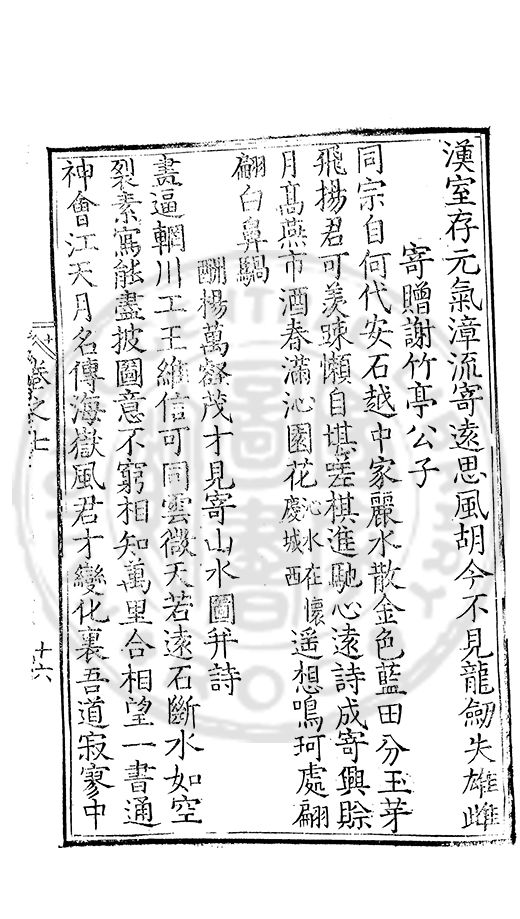 漢室存元氣漳流寄遠思風胡今不見龍劒失雄雌
寄贈謝竹亭公子
同宗自何代安石越中家麗水散金色藍田分玉芽
飛揚君可羨踈懶自堪嗟棋進馳心遠詩成寄興賒
月髙燕市酒春滿沁園花沁水在懷慶城西遥想鳴珂處翩
翩白鼻騧
酬楊萬壑茂才見寄山水圖幷詩
畫逼輞川工王維信可同雲微天若遠石斷水如空
裂素寫能盡披圖意不窮相知萬里合相望一書通
神會江天月名傳海嶽風君才變化裏吾道寂寥中
卷之七
十六